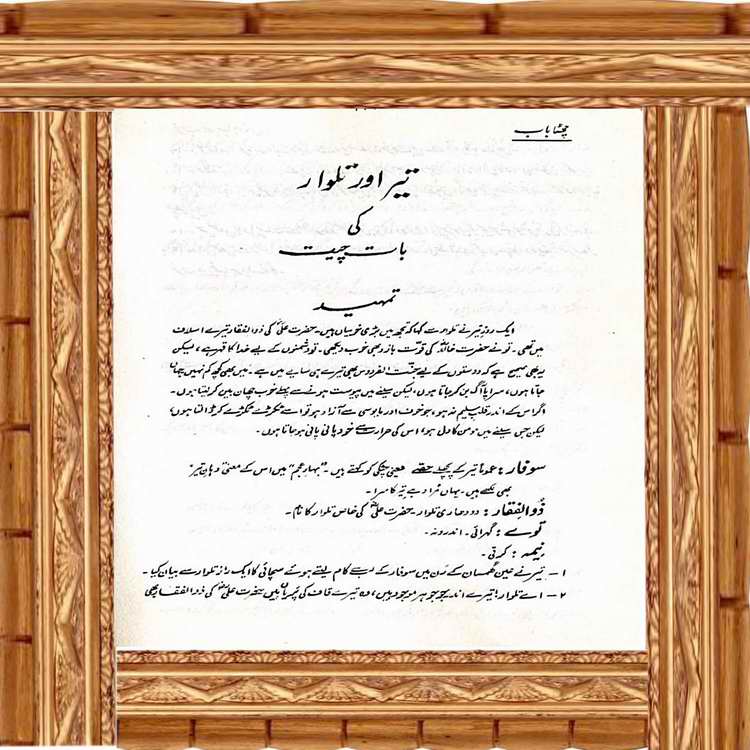 چھٹا باب
تیر اور تلوار
کی
بات چیت
تمہید
ایک روز تیر نے تلوار سے کہا کہ تجھ میں بڑی خوبیاں ہیں۔ حضرت علیؓ کی ذوالفقار تیرے اسلاف
میں تھی۔ تو نے حضرت خالدؓ کی قوت بازو بھی خوب دیکھی۔ تو دشمنوں کے لیے خدا کا قہر ہے، لیکن
یہ بھی صحیح ہے کہ دوستوں کے لیے جنت الفردوس بھی تیرے ہی سایے میں ہے۔ میں بھی کچھ کم نہیں جہاں
جاتا ہوں، سراپا آگ بن کر جاتا ہوں، لیکن سینے میں پیوست ہونے سے پہلے خوب چھان بین کر لیتا ہوں۔
اگر اس کے اندر قلب سلیم نہ ہو، جو خوف اور مایوسی سے آزاد ہو تو اسے ٹکڑے ٹکڑے کر ڈالتا ہوں،
لیکن جس سینے میں مومن کا دل ہو، اس کی حرارت سے خود پانی پانی ہو جاتا ہوں۔
سوفار: عموماً تیر کے پچھلے حصّے یعنی چٹکی کو کہتے ہیں۔ "بہار عجم" میں اس کے معنیٰ دہانِ تیر
بھی لکھے ہیں۔ یہاں مراد ہے تیر کا سرا۔
ذُوالفقار: دو دھاری تلوار۔ حضرت علیؓ کی خاص تلوار کا نام۔
توے: گہرائی۔ اندرونہ۔
نیمہ: کرتی۔
۱ — تیر نے عین گھمسان کے رن میں سوفار کے لب سے کام لیتے ہوئے سچائی کا ایک راز تلوار سے بیان کیا۔
۲ — اے تلوار! تیرے اندر جو جوہر موجود ہیں، وہ تیرے قاف کی پریاں ہیں۔ حضرت علیؓ کی ذوالفقار بھی